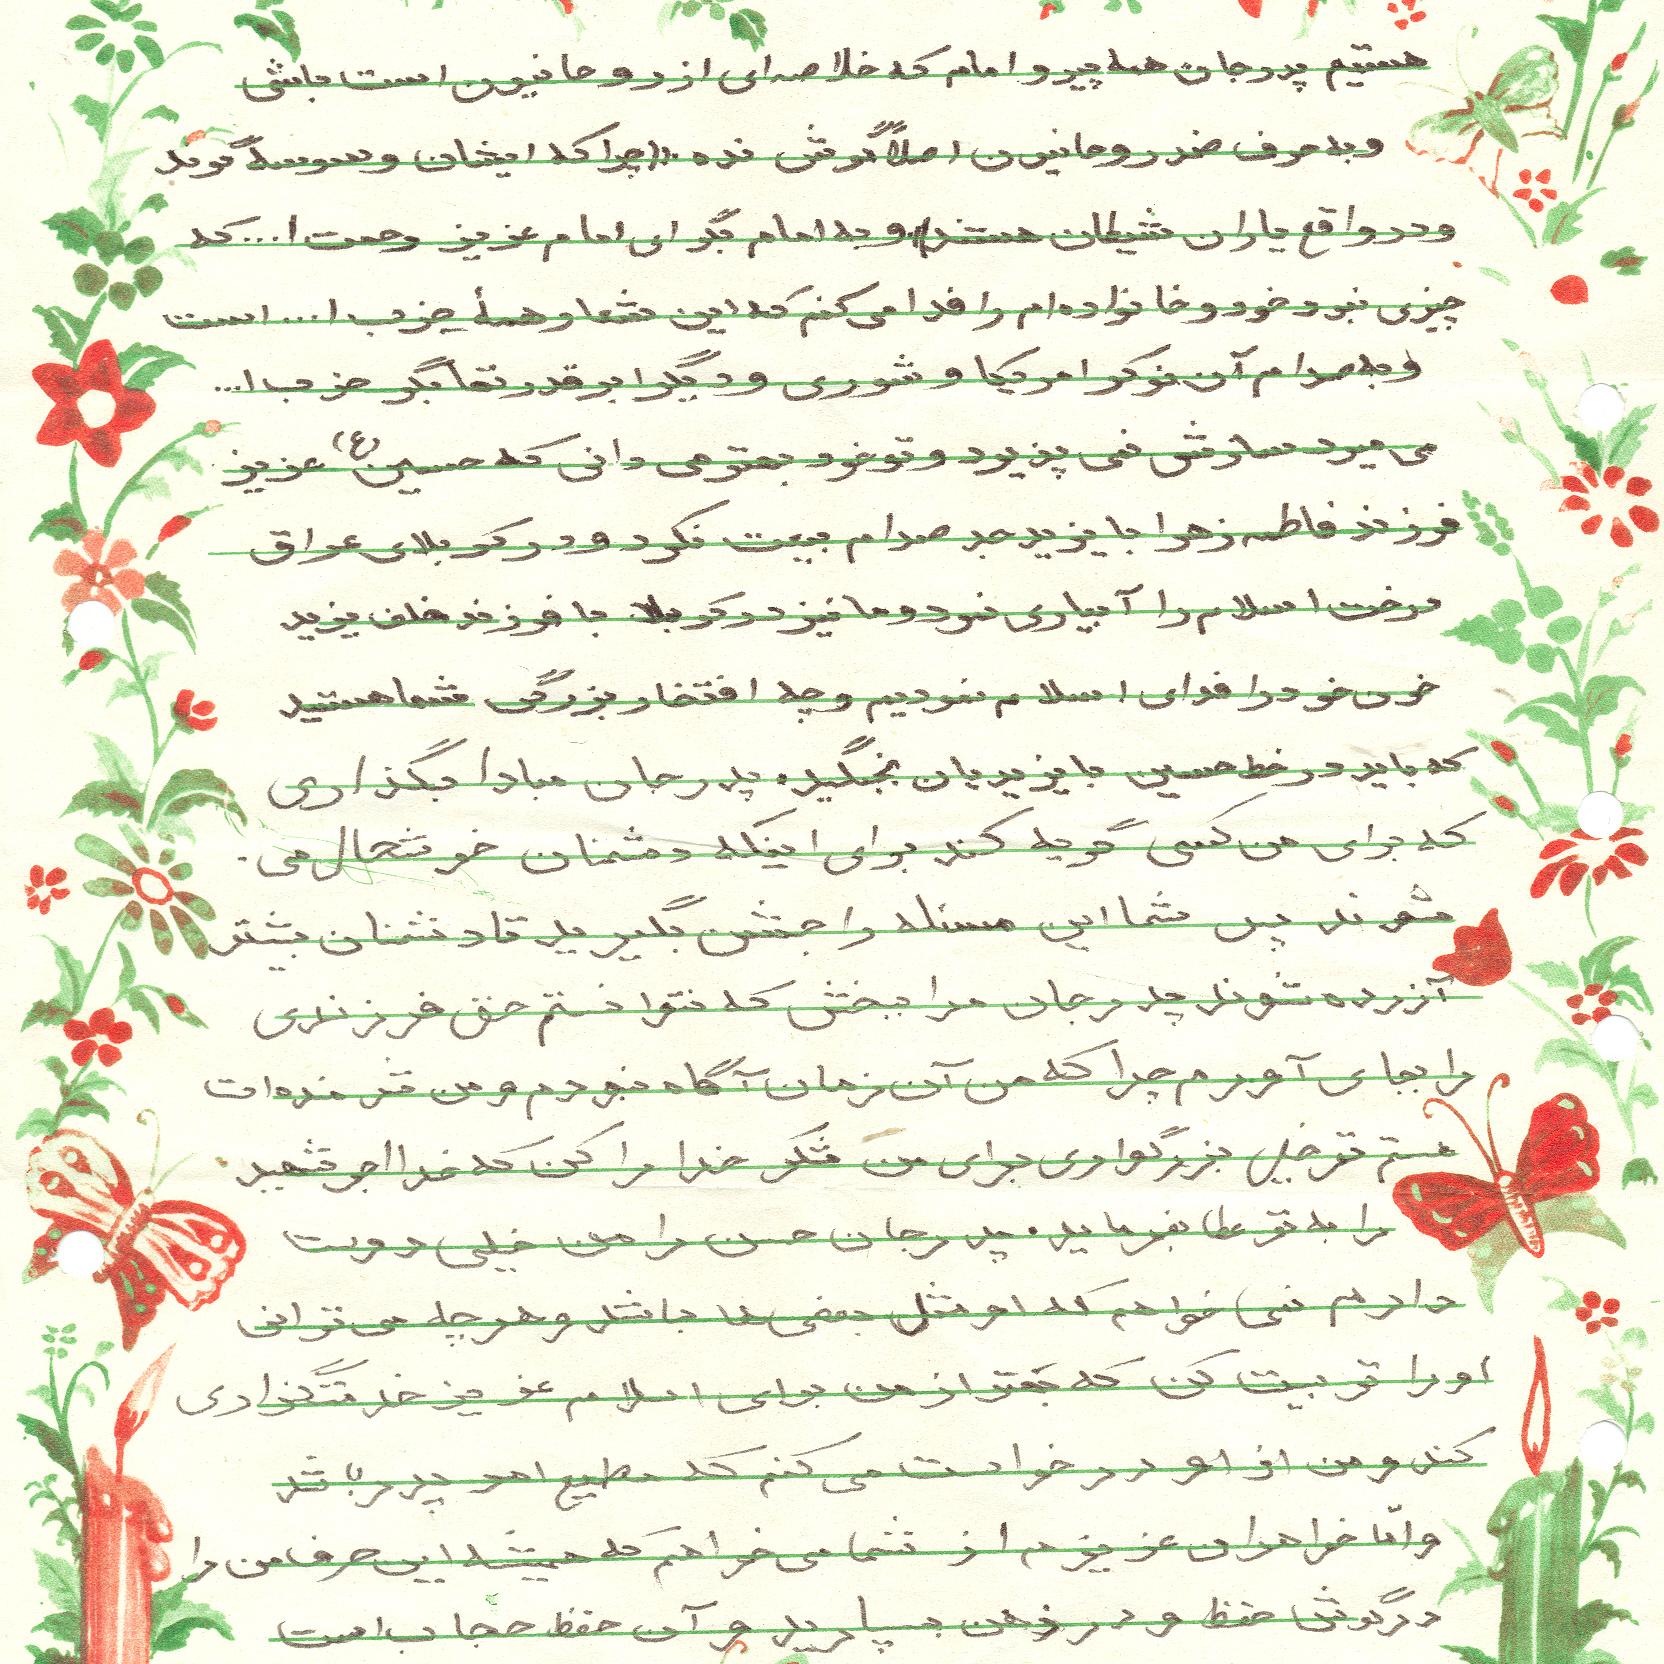 هستیم پدر جان همه پیرو امام که خلاصه‌ای از روحانیون است باشی
و به حرف ضد روحانیون اصلاً گوش نده «چرا که ایشان وسوسه‌گرند
و در واقع یاران شیطان هستند» و به امام بگو ای امام عزیز رحمت ا... که
چیزی نبود خود و خانواده‌ام را فدا می‌کنم که این شعار همهٔ حزب ا... است
و به صدام آن نوکر امریکا و شوری و دیگر ابرقدرتها بگو حزب ا...
می میرد سازش نمی پزیرد و تو خود بهتر می دانی که حسین (ع) عزیز
فرزند فاطمه زهرا با یزید جد صدام بیعت نکرد و در کربلای عراق
درخت اسلام را آبیاری نمود و ما نیز در کربلا با فرزند خلف یزید
خون خود را فدای اسلام نمودیم و چه افتخار بزرگی شما هستید
که باید در خط حسین با یزیدیان بجنگید. پدر جان مبادا بگذاری
که برای من کسی گریه کند برای اینکه دشمنان خوشحال می.
شوند پس شما این مسئله را جشن بگیرید تا دشنان بیشتر
آزرده شوند پدر جان مرا ببخش که نتوانستم حق فرزندی
را بجای آورم چرا که من آن زمان آگاه نبودم و من شرمنده‌ات
هستم تو خیلی بزرگواری برای من شکر خدا را کن که خدا اجر شهید
را به تو عطا بفرماید. پدر جان حسن را من خیلی دوست
دارم نمی خواهم که او مثل بعضی ها باشد و هر چه می توانی
او را تربیت کن که بهتر از من برای اسلام عزیز خدمتگزاری
کند و من از او درخواست می کنم که مطیع امر پدر باشد
و امّا خواهران عزیزم از شما می خواهم که همیشه این حرف من را
در گوش حفظ و در ذهن بسپارید و آن حفظ حجاب است